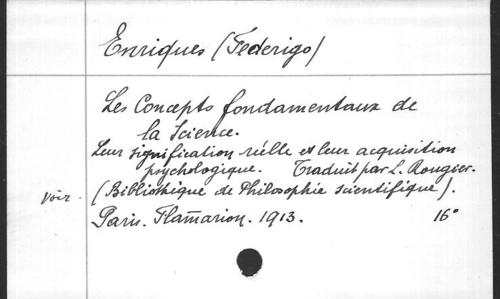 Enriques (Federigo)
Les Concepts fondamentaux de
la Science.
Leur signification réelle et leur acquisition
psychologique. Traduit par L. Rougier.
Voir. (Bibliothèque de Philosophie scientifique).
Paris. Flammarion. 1913. 16°